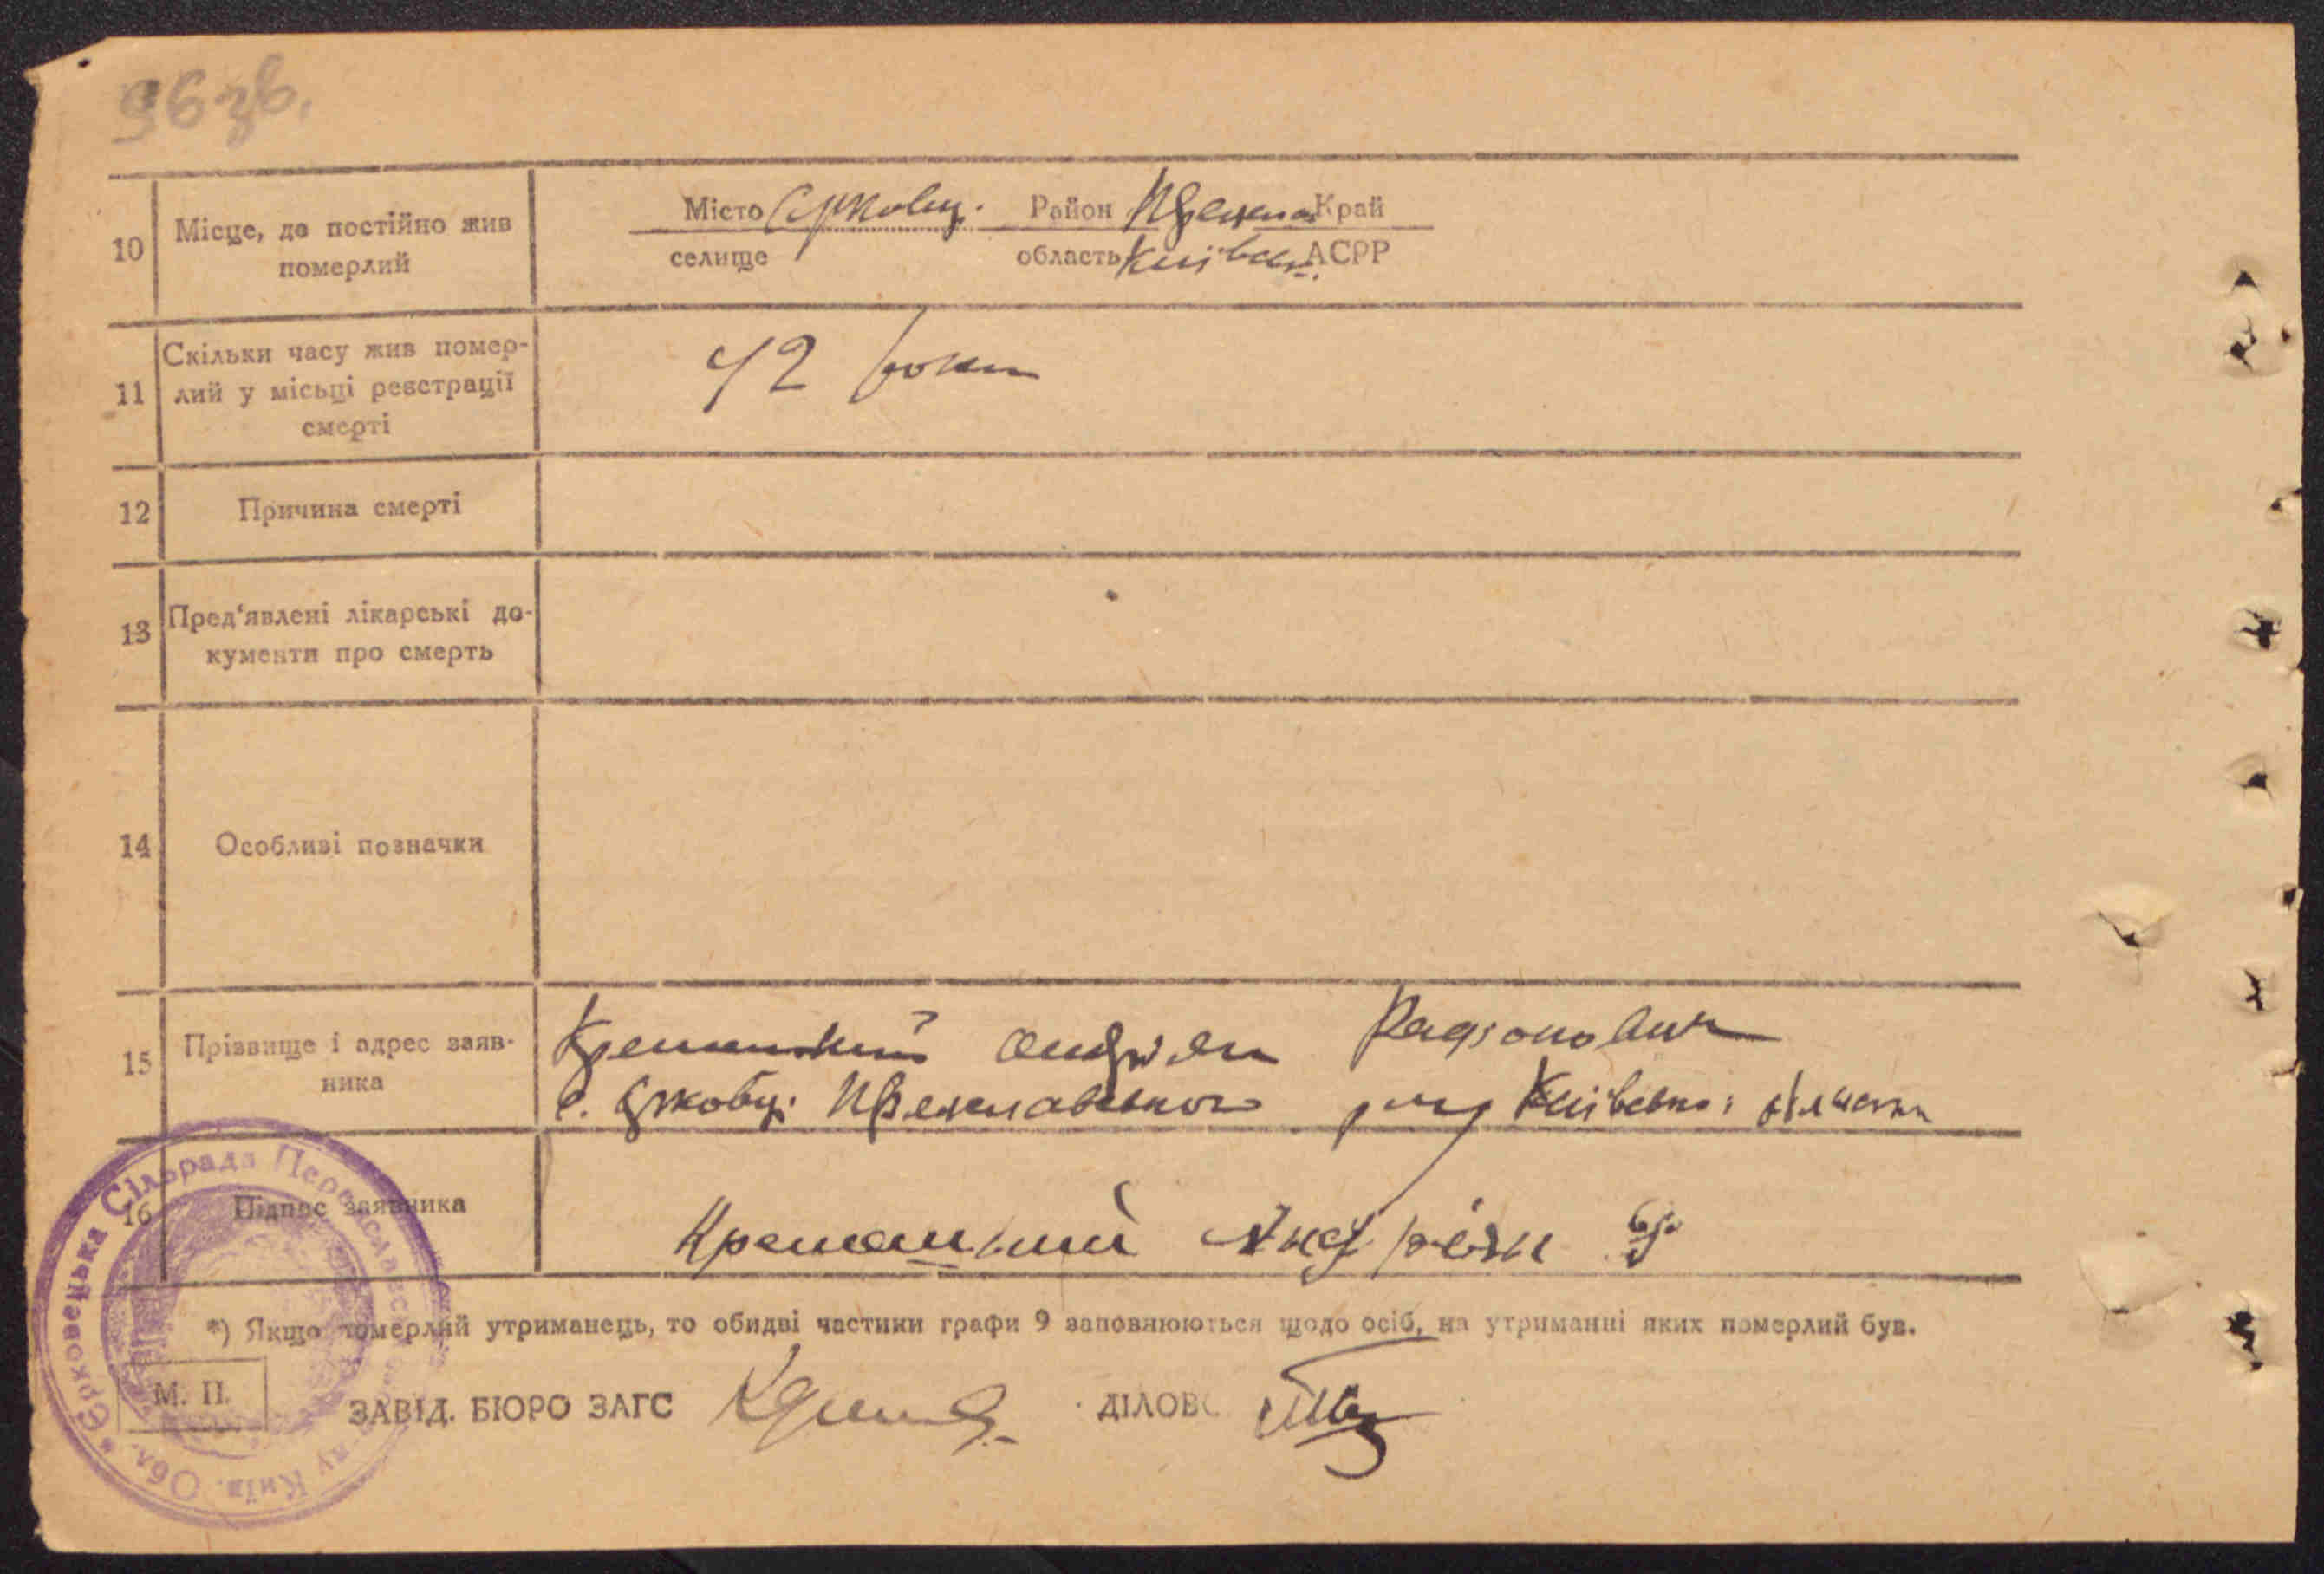 96 зв.
10 Місце, де постійно жив померлий
Місто Єрковці Район Переясл Край
селище область Київськ. АСРР
11 Скільки часу жив помер-
лий у місьці реєстрації
смерті
42 роки
12 Причина смерті
13 Пред'явлені лікарські до-
кументи про смерть
14 Особливі позначки
15 Прізвище і адрес заяв-
ника
Андріян Радіонович
с. Єрковці Переяславського р-ну Київської області
16 Підпис заявника
Андріян
*) Якщо померлий утриманець, то обидві частини графи 9 заповнюються щодо осіб, на утриманні яких померлий був.
М. П.
ЗАВІД. БЮРО ЗАГС ДІЛОВ
Єрковецька Сільрада Переяславськ ну Київ. Обл.